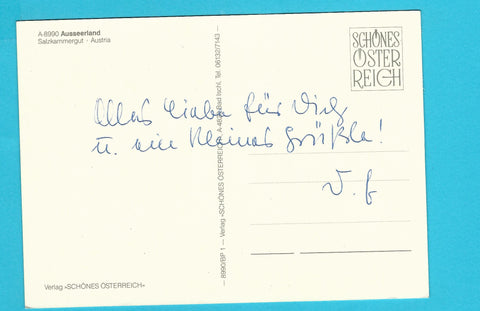 A-8990 Ausseerland
Salzkammergut · Austria
SCHÖNES
ÖSTER
REICH
Alles Liebe für Dich
u. ein kleines Grüßle!
— 8990/BP 1 — Verlag »SCHÖNES ÖSTERREICH«, Bad Ischl, Tel. 06132/7143 —
Verlag »SCHÖNES ÖSTERREICH«